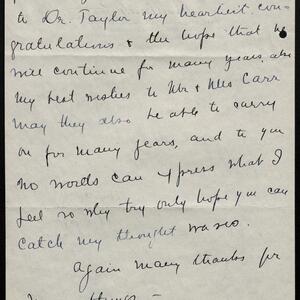 to Dr. Taylor my heartiest con-
gratulations & the hope that he
will continue for many years, also
my best wishes to Mr & Mrs Carr
may they also be able to carry
on for many years, and to you
no words can xpress what I
feel so why try only hope you can
catch my thought waves.
Again many thanks for